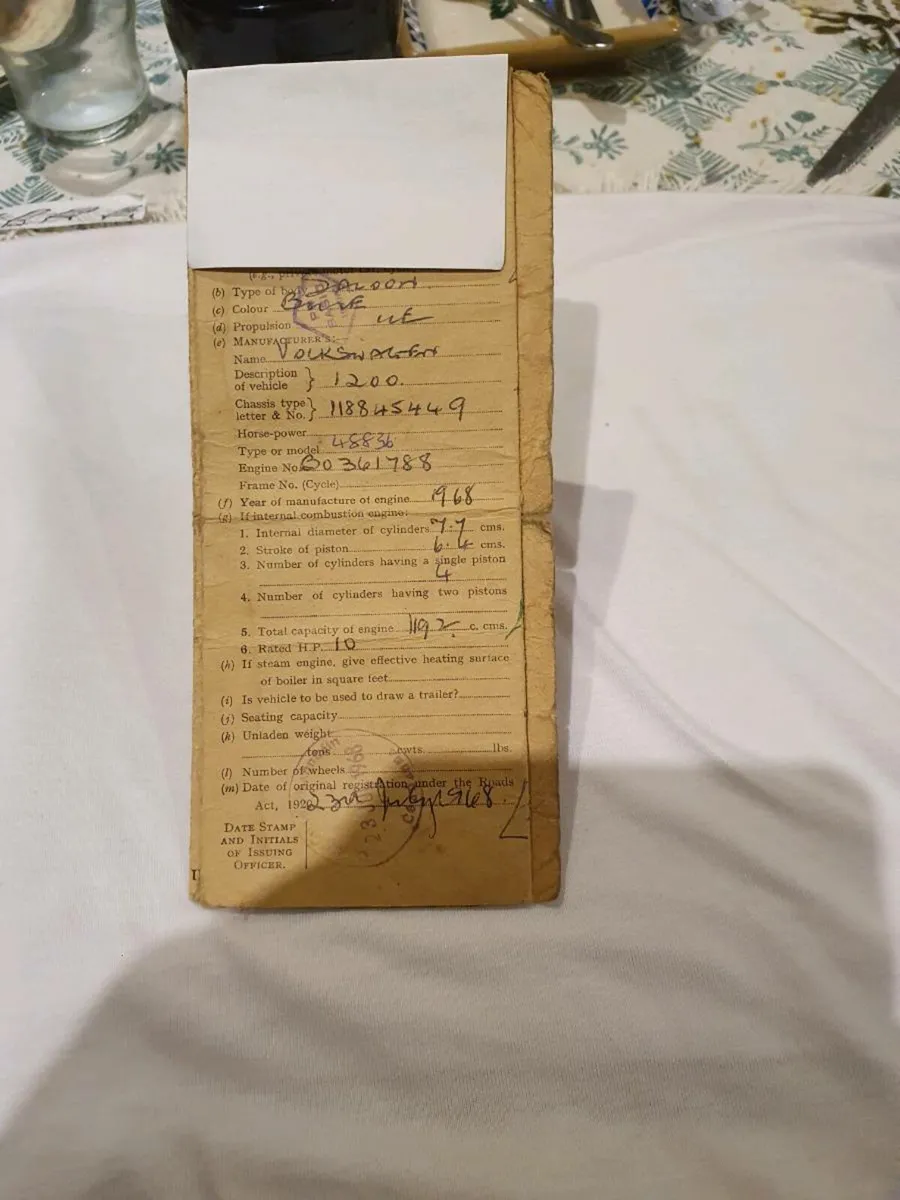 (b) Type of body SALOON
(c) Colour
(d) Propulsion ICE
(e) MANUFACTURER'S:
Name VOLKSWAGEN
Description
of vehicle } 1200.
Chassis type
letter & No. } 118845449
Horse-power
Type or model 48836
Engine No. DO361788
Frame No. (Cycle)
(f) Year of manufacture of engine 1968
(g) If internal combustion engine:
1. Internal diameter of cylinders 7.7 cms.
2. Stroke of piston 6.4 cms.
3. Number of cylinders having a single piston
4
4. Number of cylinders having two pistons
5. Total capacity of engine 1192 c. cms.
6. Rated H.P. 10
(h) If steam engine, give effective heating surface
of boiler in square feet
(i) Is vehicle to be used to draw a trailer?
(j) Seating capacity
(k) Unladen weight
tons cwts. lbs.
(l) Number of wheels
(m) Date of original registration under the Roads
Act, 1920 23rd July 1968
DATE STAMP
AND INITIALS
OF ISSUING
OFFICER.